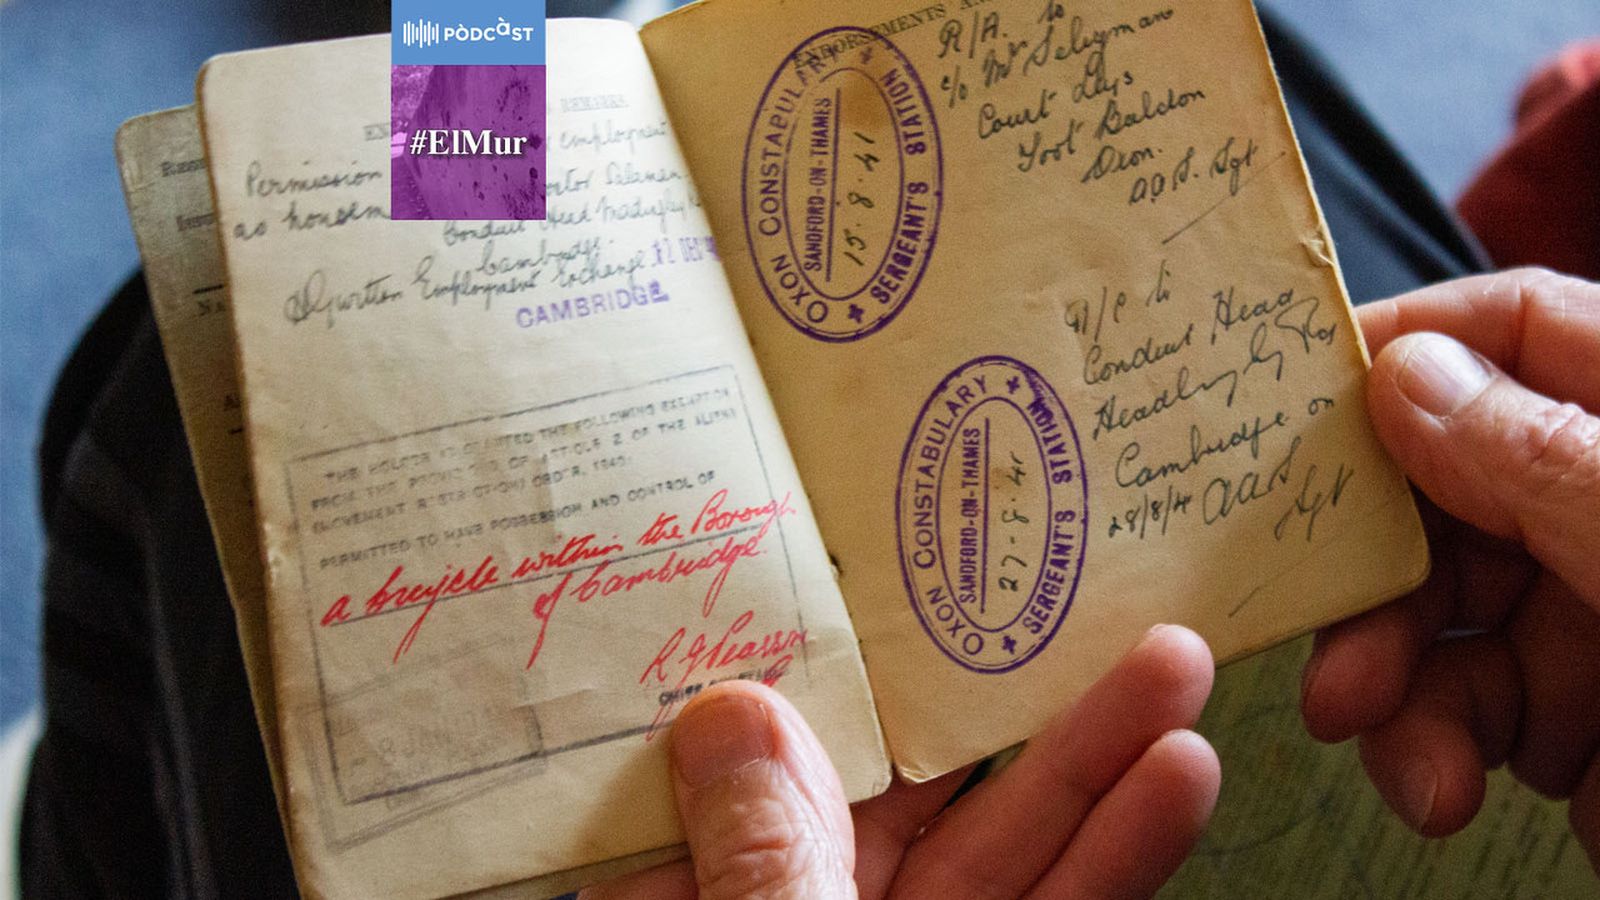 PÒDCÀST
#ElMur
REMARKS
employment
Permission
as housem
Conduit Head Madingley
Cambridge.
Employment Exchange
CAMBRIDGE
THE HOLDER IS GRANTED THE FOLLOWING EXEMPTION
FROM THE PROVISIONS OF ARTICLE 2 OF THE ALIENS
(MOVEMENT RESTRICTION) ORDER, 1940:
PERMITTED TO HAVE POSSESSION AND CONTROL OF
a bicycle within the Borough
of Cambridge.
R J Pearson
CHIEF
ENDORSEMENTS
OXON CONSTABULARY
SANDFORD-ON-THAMES
15·8·41
SERGEANT'S STATION
R/A. to
c/o Mr
Court Leys
Toot Baldon
Oxon.
Sgt
OXON CONSTABULARY
SANDFORD-ON-THAMES
27-8-41
SERGEANT'S STATION
Conduit Head
Cambridge on
28/8/41
Sgt